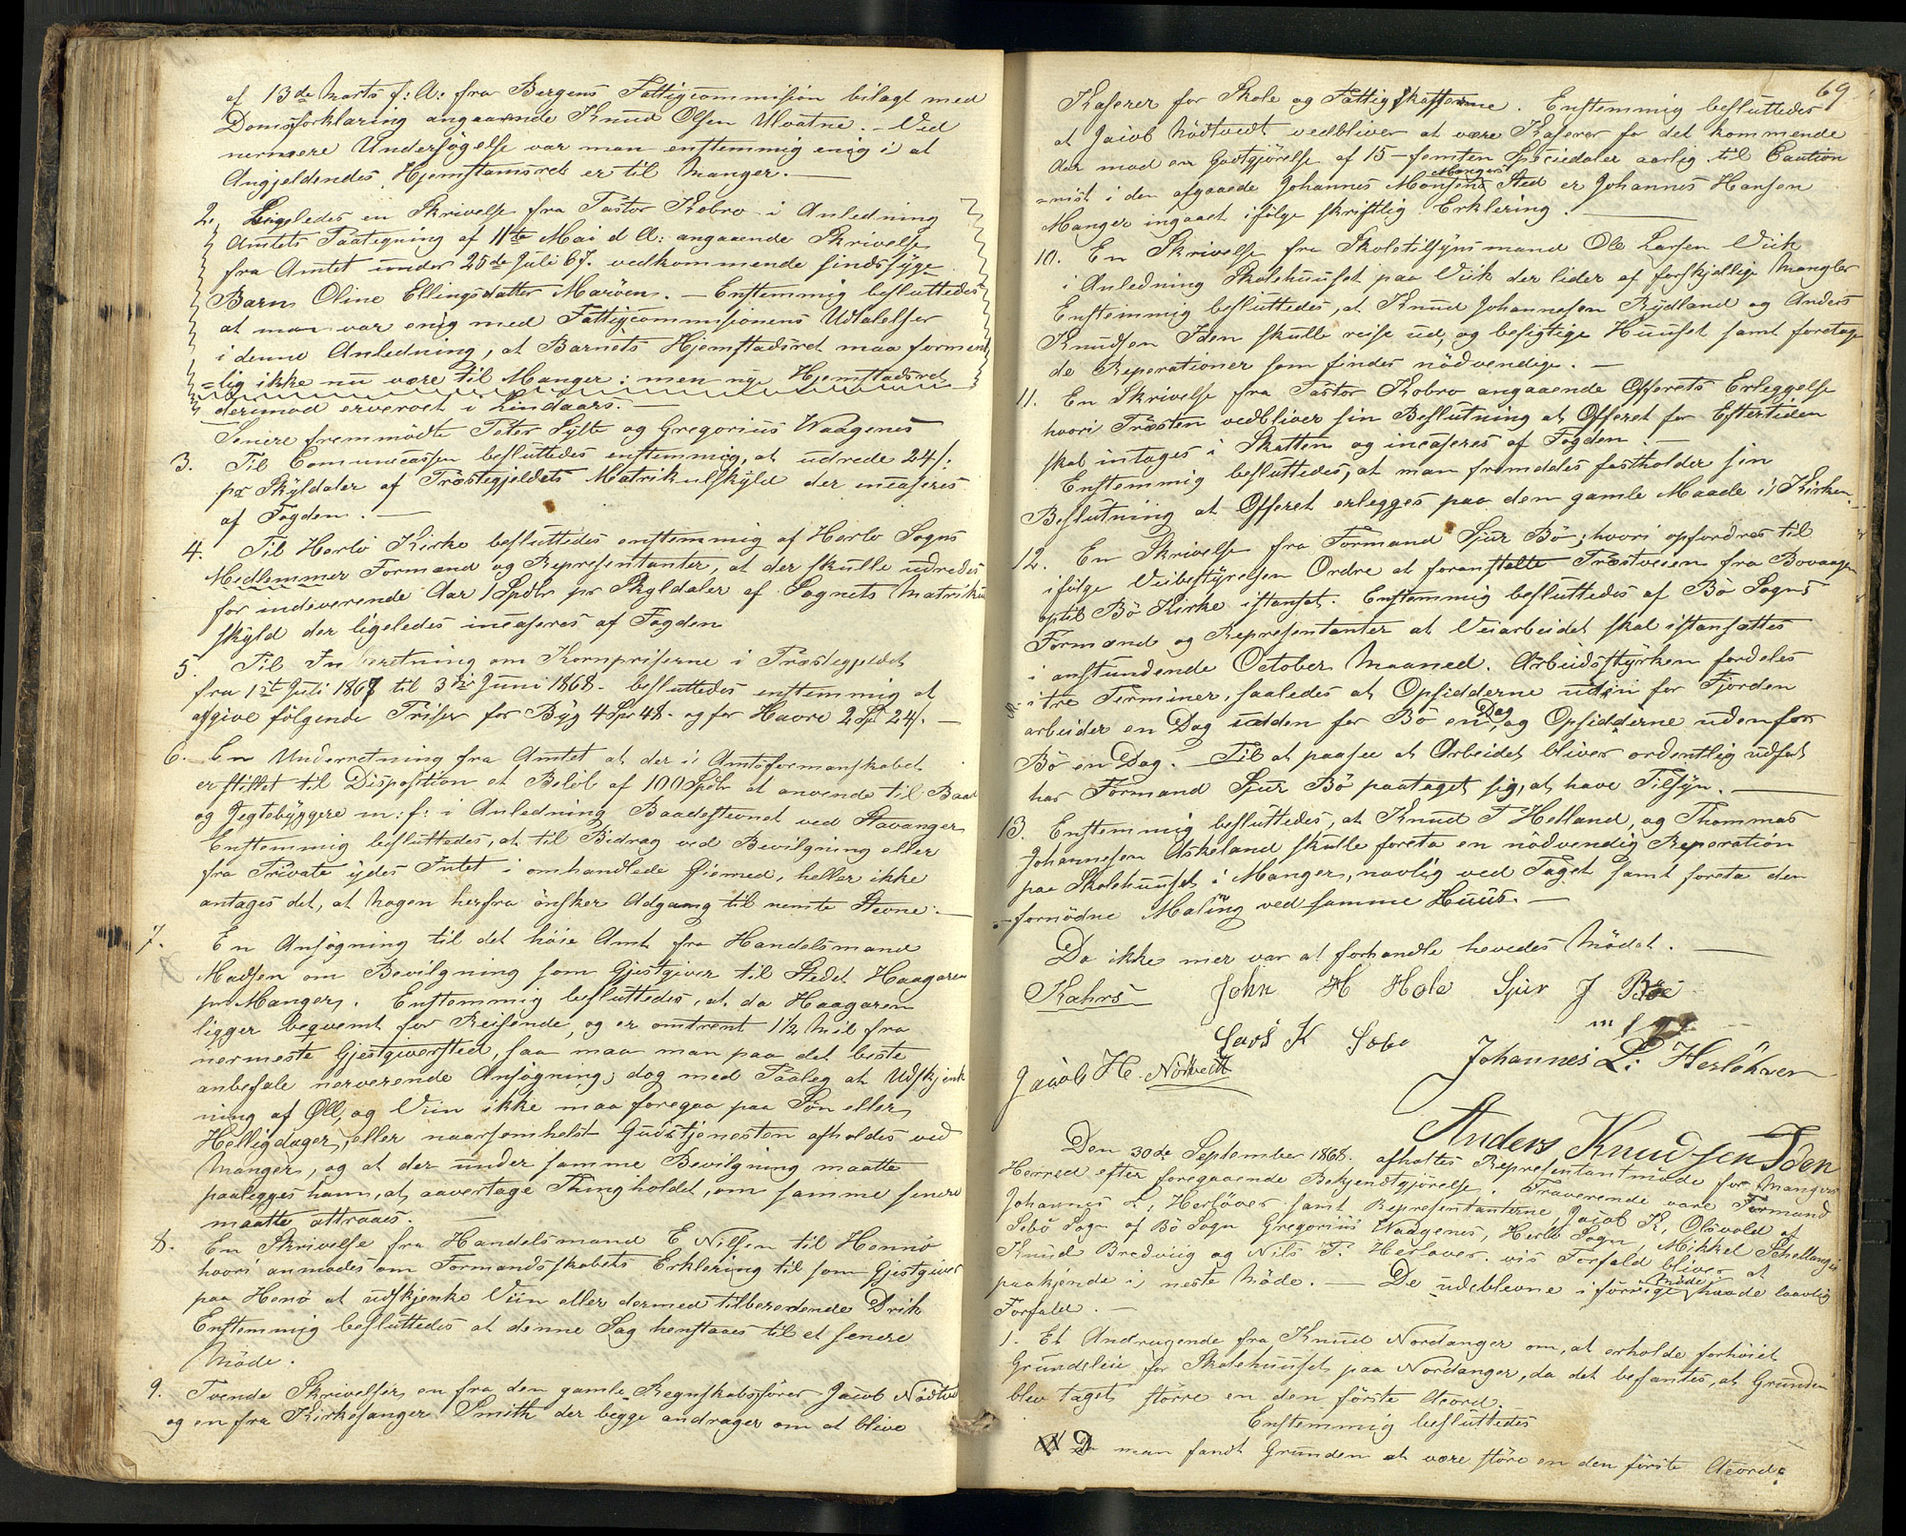 af 13de Marts f: A: fra Bergens Fattigcommision bilagt med
Domsforklaring angaaende Knud Olsen Ulvatne. - Ved
nermere Undersögelse var man enstemmig enig i at
Angjeldendes Hjemstamsret er til Manger. -
2. Ligeledes en Skrivelse fra Pastor Kobro i Anledning
Amtets Paategning af 11te Mai d A: angaaende Skrivelse
fra Amtet under 25de Juli 67. vedkommende sindssyge
Barn Oline Ellingsdatter Maröen. - Enstemmig besluttedes
at man var enig med Fattigcommisionens Udtalelser
i denne Anledning, at Barnets Hjemstadsret maa forment
=lig ikke nu være til Manger: men nye Hjemstadsret
derimod ervervet i Lindaars. -
Senere fremmödte Peter Sylte og Gregorius Waagenes
3. Til Comunecassen besluttedes enstemmig, at udrede 24/:
pr Skyldaler af Præstegjeldets Matrikulskyld der incaseres
af Fogden. -
4. Til Herlö Kirke besluttedes enstemmig af Herlö Sogns
Medlemmer Formænd og Representanter, at der skulle udredes
for indeverende Aar 1 Spdlr pr Skyldaler af Sognets Matrikul
skyld der ligeledes incaseres af Fogden
5. Til Inberetning om Kornpriserne i Præstegjeldet
fra 1st Juli 1867 til 31te Juni 1868. besluttedes enstemmig at
afgive fölgende Priser for Byg 4 Spr 48. og for Havre 2 Sp 24/. -
6. En Underretning fra Amtet at der i Amtsformanskabet
er stillet til Disposition et Belöb af 100 Spdlr at anvende til Baad
og Jegtebyggere m: f: i Anledning Baadestevnet ved Stavanger
Enstemmig besluttedes, at til Bidrag ved Bevilgning eller
fra Private ydes Intet i omhandlede Öiemed, heller ikke
antages det, at Nogen herfra önsker Adgang til nemte Stevne. -
7. En Ansögning til det höie Amt fra Handelsmand
Madsen om Bevilgning som Gjestgiver til Stedet Haagaren
pr Manger. Enstemmig besluttedes, at da Haagaren
ligger beqvemt for Reisende, og er omtrent 1½ Mil fra
nermeste Gjestgiversted, saa maa man paa det beste
anbefale nerverende Ansögning; dog med Paaleg at Udskjenk
ning af Öll, og Viin ikke maa foregaa paa Sön eller
Helligdager, eller naarsomhelst Gudstjenesten afholdes ved
Manger, og at der under samme Bevilgning maatte
paalegges ham, at aavertage Thingholdet, om samme senere
maatte attraaes. -
8. En Skrivelse fra Handelsmand E Nilsen til Hennö
hvori anmodes om Formandsskabets Erklering til som Gjestgiver
paa Henö at udskjenke Viin eller dermed tilberedende Drik
Enstemmig besluttedes at denne Sag henstaaes til et senere
Möde.
9. Tvende Skrivelser, en fra den gamle Regnskabsförer Jacob Nödtve
og en fra Kirkesanger Smith der begge andrager om at blive
69
Kaserer for Skole og Fattigkasserne. Enstemmig besluttedes
at Jacob Nödtvedt vedbliver at være Kaserer for det kommende
Aar mod en Godtgjörelse af 15 - femten Speciedaler aarlig til Caution
Mangers
=nist i den afgaaede Johannes Monsens Sted er Johannes Hansen
Manger ingaaet ifölge skriftlig Erklering. -
10. En Skrivelse fra Skoletilsynsmand Ole Larsen Viik
i Anledning Skolehuuset paa Viik der lider af forskjellige Mangler
Enstemmig besluttedes, at Knud Johannesen Rydland og Anders
Knudsen Iden skulle reise ud, og besigtige Huuset samt foretage
de Reperationer som findes nödvendige. -
11. En Skrivelse fra Pastor Kobro angaaende Offerets Erleggelse
hvori Præsten vedbliver sin Beslutning at Offeret for Eftertiden
skal intages i Skatten og incaseres af Fogden. -
Enstemmig besluttedes, at man fremdeles fastholder sin
Beslutning at Offeret erlegges paa den gamle Maade i Kirken.
12. En Skrivelse fra Formand Sjur Bö, hvori opfordres til
ifölge Veibestyrelsen Ordre at foranstalte Præstveien fra Bovaagen
optil Bö Kirke istansat. Enstemmig besluttedes af Bö Sogns
Formænd og Representanter at Veiarbeidet skal istansættes
i anstundende October Maaned. Arbeidsstyrken fordeles
i tre Terminer, saaledes at Opsidderne uden for Fjorden
arbeider en Dag udden for Bö en Dag, og Opsidderne udenfor
Bö en Dag. - Til at paasee at Arbeidet bliver ordentlig udfört
har Formand Sjur Bö paataget sig, at have Tilsyn. -
13. Enstemmig besluttedes, at Knud T Helland, og Thommas
Johannesen Askeland skulle foreta en nödvendig Reperation
paa Skolehuuset i Manger, navlig ved Taget samt foreta den
=fornödne Maling ved samme Huus. -
Da ikke mer var at forhandle hevedes Mödet. -
Kahrs John H Hole Sjur J Böe
Lars K Sæbö
Jacob H. Nötvedt Johannes L: Herlöhver
Anders Knudsen Iden
Den 30de September 1868. afholtes Representantmöde for Mangers
Herred efter foregaaende Bekjendtgjörelse. Traverende vare Formand
Johannes L, Herlöver samt Representanterne, Jacob K, Olsvold af
Sebö Sogn af Bö Sogn Gregorius Waagenes, Herlö Sogn, Mikkel Schellanger
Knud Bradviig og Nils P. Herlöver. vis Forfald bliver at
paakjende i neste Möde. - De udeblevne i forrige Möde havde laavlig
Forfald. -
1. Et Andragende fra Knud Nordanger om, at erholde forhöiet
Grundsleie for Skolehuuset paa Nordanger, da det befantes, at Grunden
blev taget större en den förste Acord.
Enstemmig besluttedes
Da man fandt Grunden at være störe en den förste Acord: